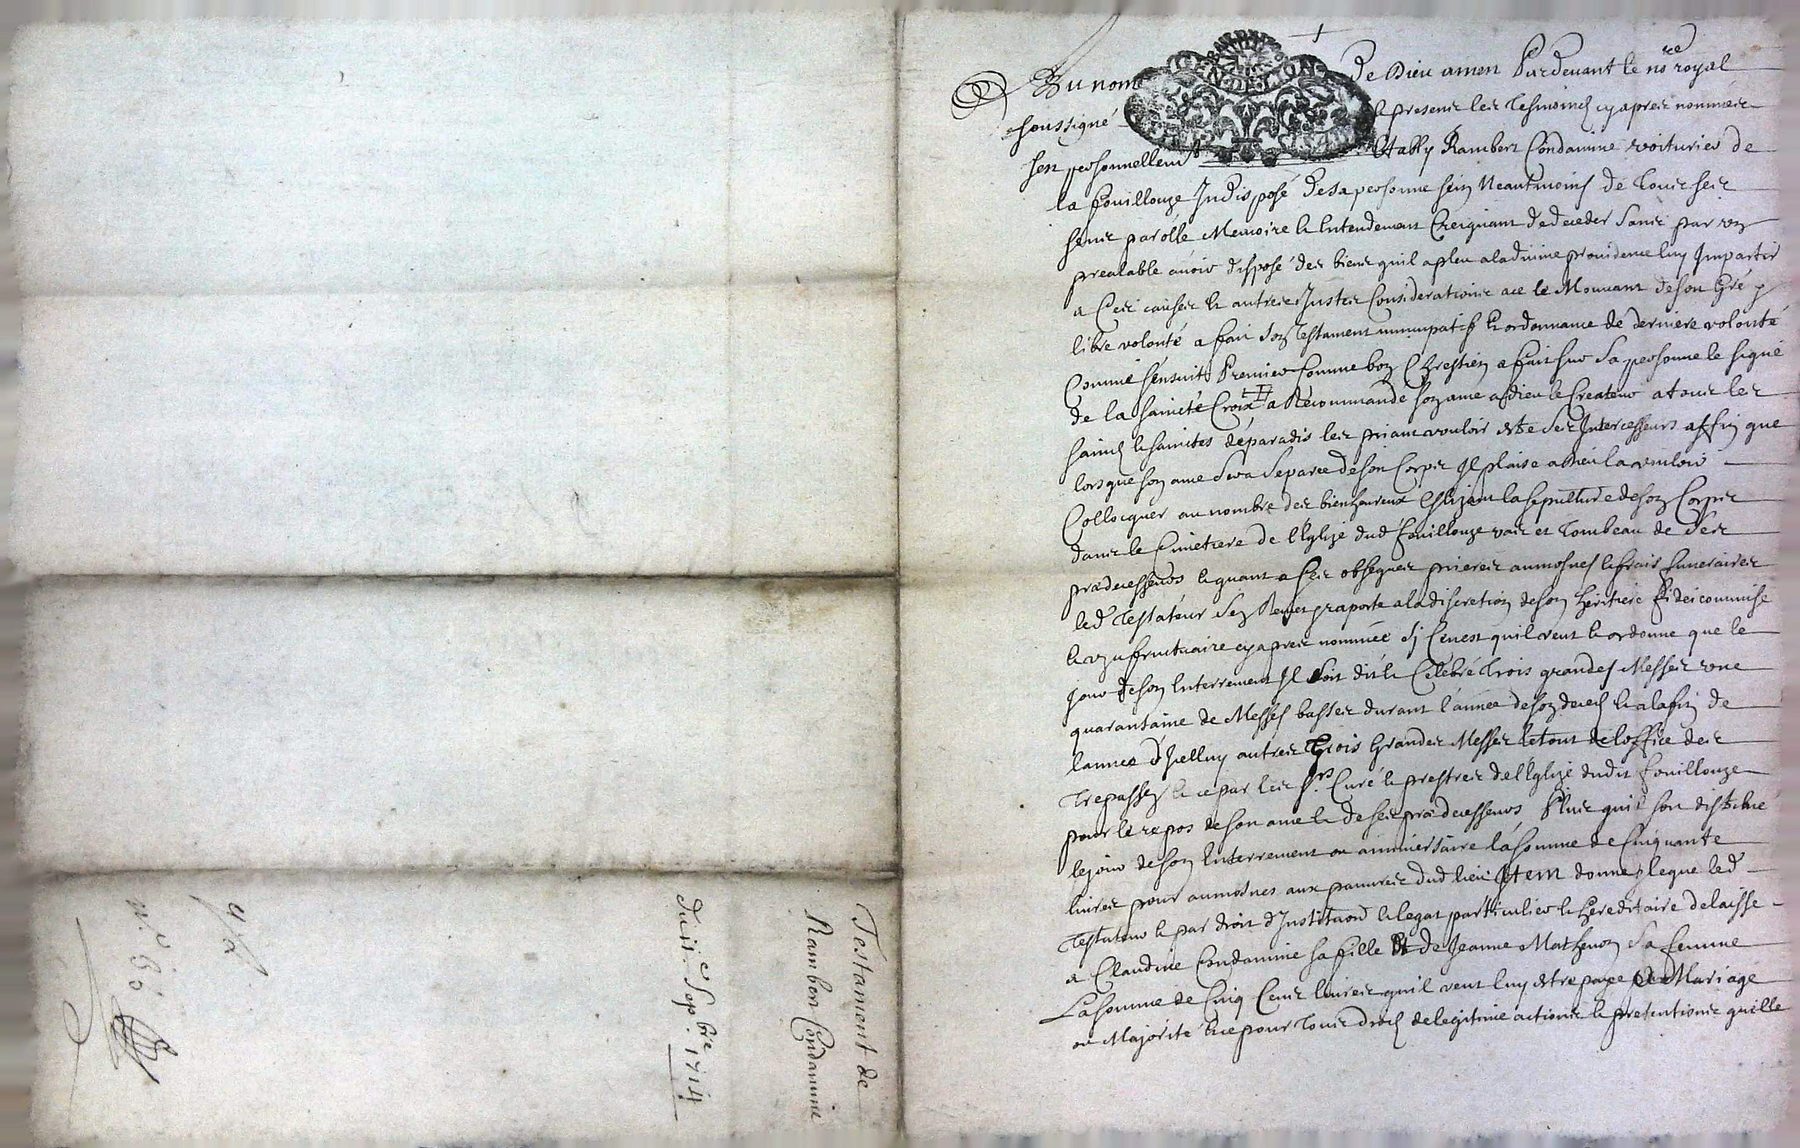 Au nom de Dieu amen Pardevant le nore royal
soussigné & presens les tesmoins cy apres nommés
sest personnellemt Estably Rambert Condamine voiturier de
la fouillouze Indisposé de sa personne sein Neantmoins de tous ses
sens parolle Memoire & Entendement Creignant de deceder sans par un
prealable avoir disposé des biens quil a pleu a la divine providence luy Impartir
a Ces causes & autres Justes Considerations ace le Mouvant de son Gré &
libre volonté a fait son testament nuncupatif & ordonnance de derniere volonté
Comme sensuit Premier Comme bon Chrestien a fait sur sa personne le signe
de la saincte Croix a Recommandé son ame a dieu le Createur a tous les
saincts & sainctes de paradis les priant vouloir estre ses Intercesseurs affin que
lors que son ame sera separée de son Corps Il plaise a dieu la vouloir
Collocquer au nombre des bienheureux Eslizant la sepulture de son Corps
dans le Cimetiere de l'Eglize dud fouillouze vas et tombeau de ses
prædecesseurs & quant a ses obseques prieres aumosnes & frais funeraires
led testateur sen Remet & raporte a la discretion de son heritiere fideicommise
& uzufructuaire cy apres nommée si Cenest quil veut & ordonne que le
jour de son Enterrement Il soit dit & Celebré trois grandes Messes une
quarantaine de Messes basses durant l'année de son deces & a la fin de
lannée d'Icelluy autres trois Grandes Messes le tout de loffice des
trepassez & ce par les srs Curé & prestres de l'Eglize dudit fouillouze
pour le repos de son ame & de ses prædecesseurs Plus quil soit distribué
le jour de son Enterrement ou anniversaire la somme de Cinquante
livres pour aumosnes aux pauvres dud lieu Item donne & legue led
testateur & par droit d'Institution & legat particulier & hereditaire delaisse
a Claudine Condamine sa fille & de Jeanne Mathevon sa femme
La somme de Cinq Cens livres quil veut luy estre payée en Mariage
ou Majorité & ce pour tous droits de legitime actions & pretentions quelle
Testament de
Rambert Condamine
du 11e Sepbre 1714